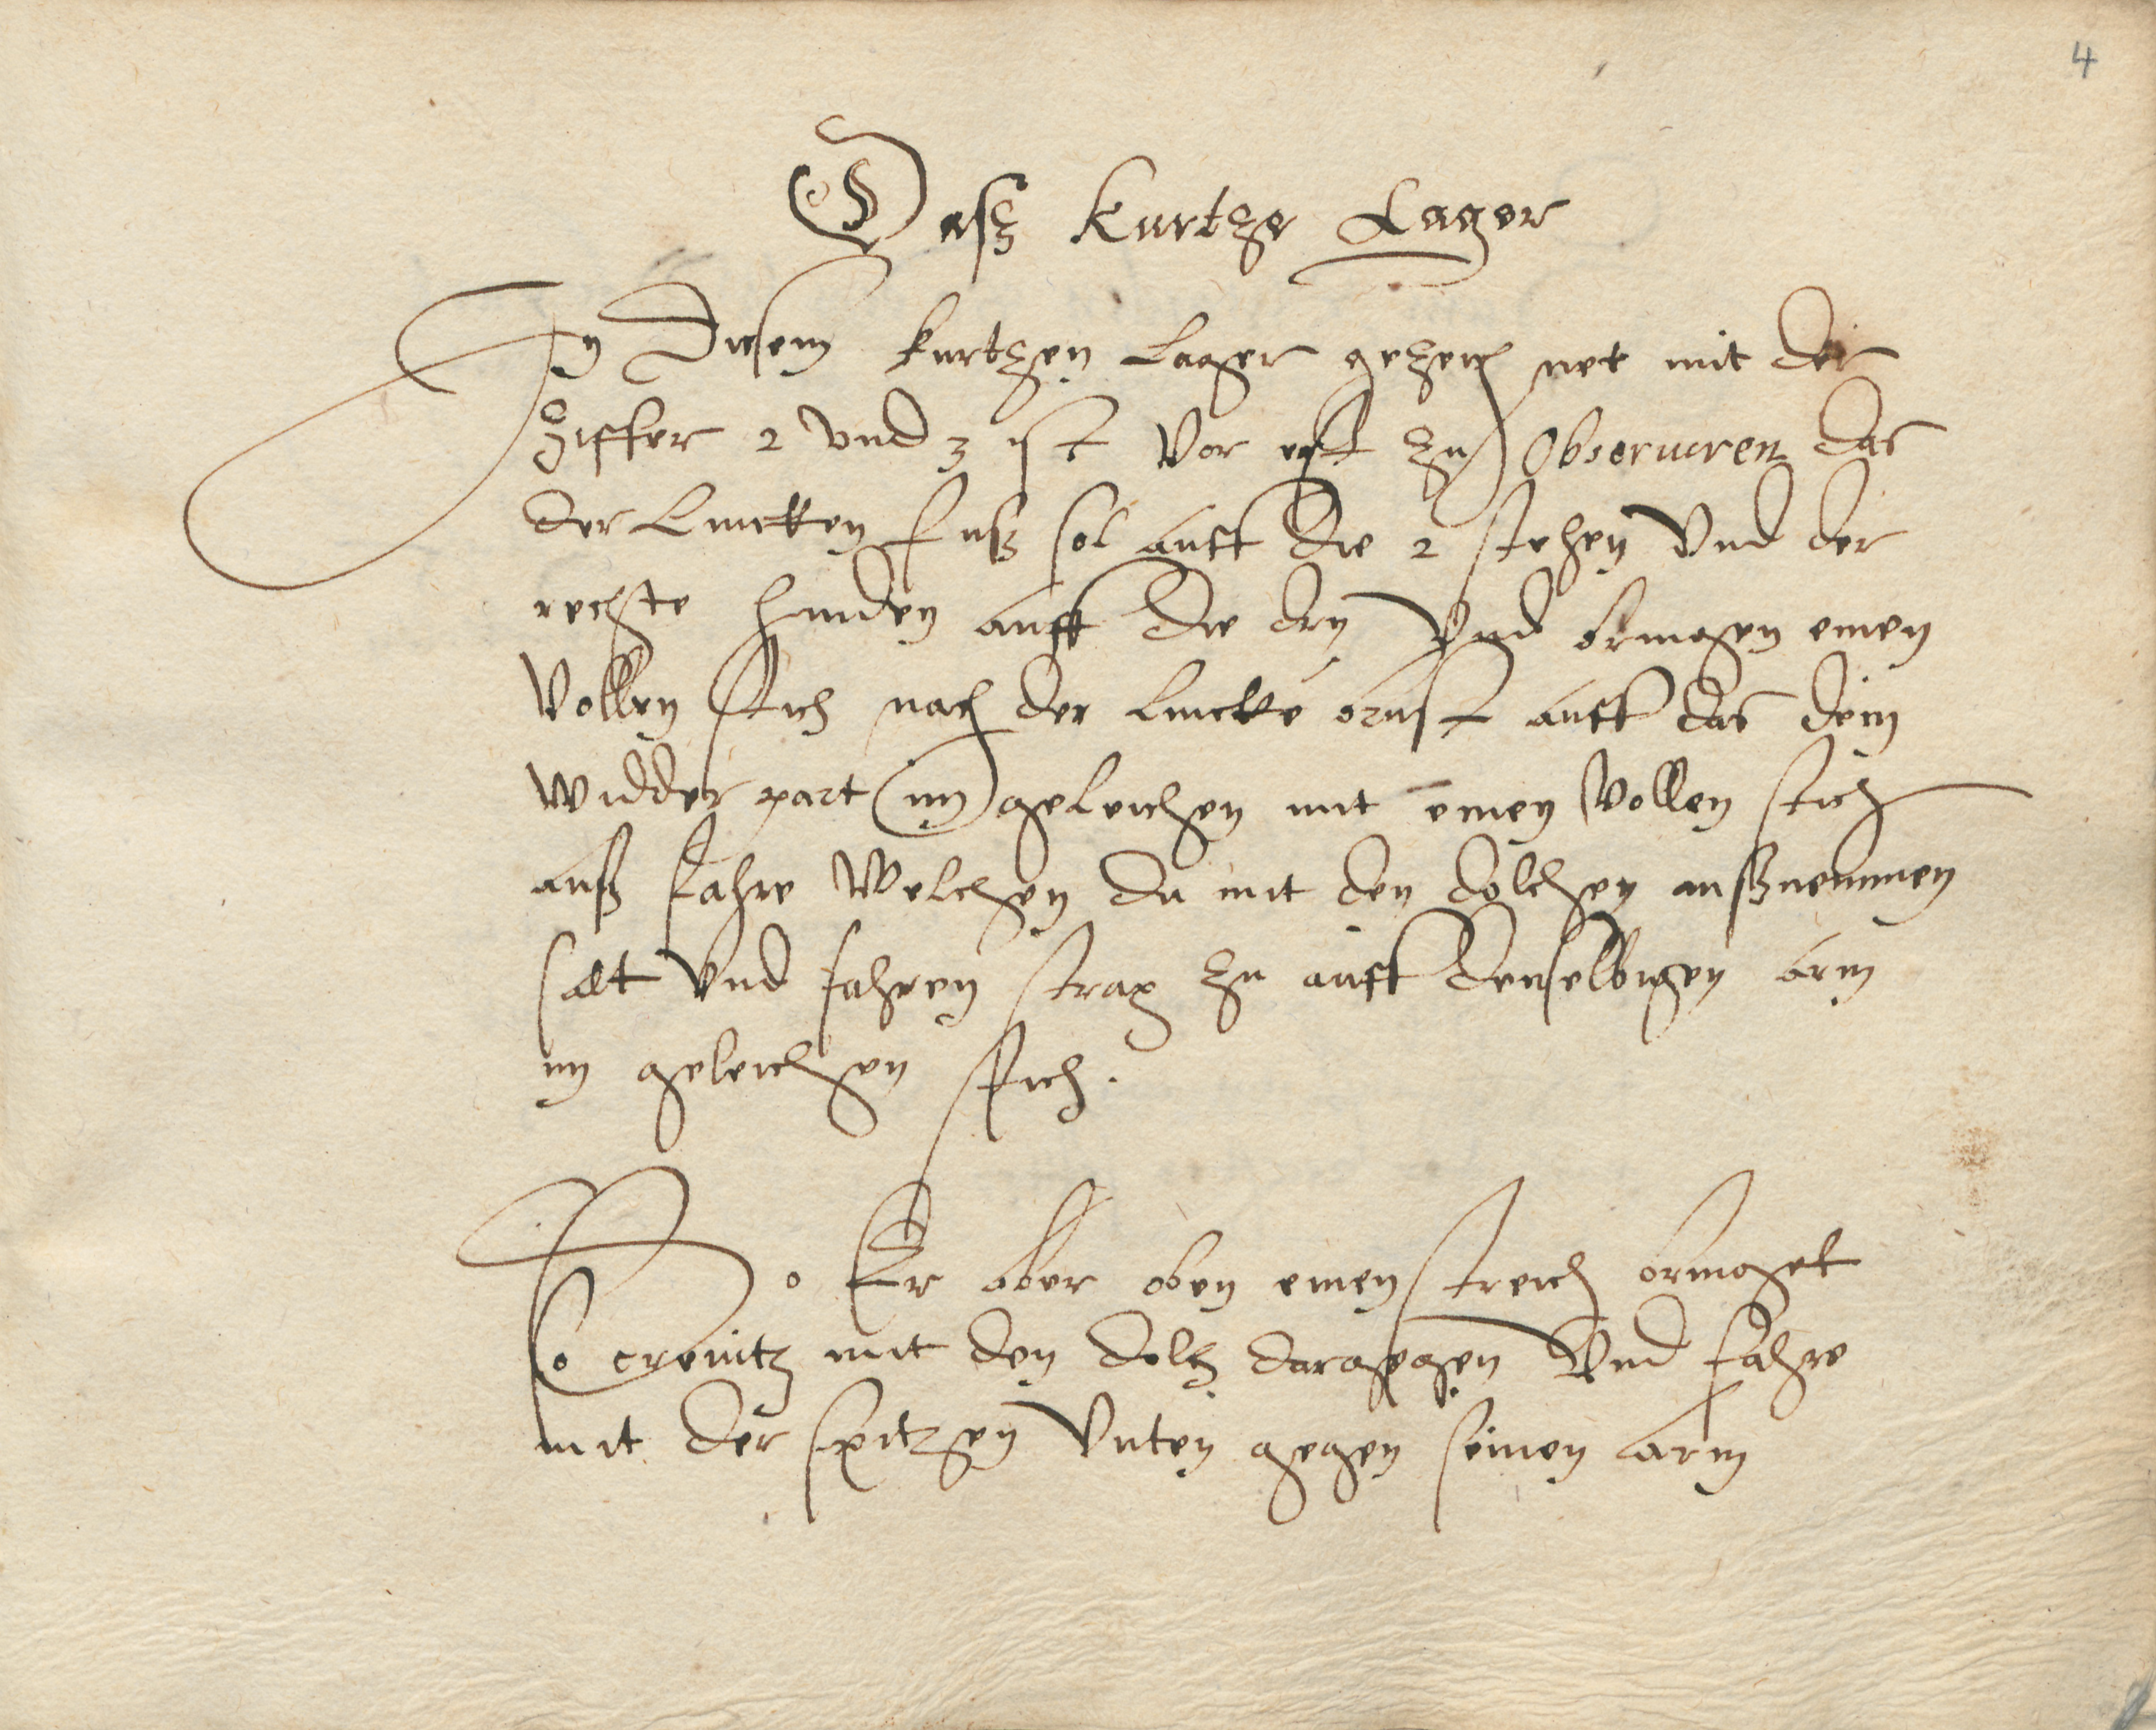 4
Daß Kurtze Lager
In Diesem kurtzen Lager gezeichnet mit der
Ziffer 2 vnd 3 ist Vor erst zu Obseruiren das
der Lincken fuß sol auff die 2 stehen Vnd der
rechte hinden auff die drey Vnd bewegen einen
Vollen stich nach der lincke brust auff das dein
widder part im geleichen mit einen Vollen stich
auß fahre Welchen du mit den dolchen außnemmen
salt Vnd fahren strax zu auff denselbigen arm
im geleichen stich.
So Er aber oben einen streich beweget
so creuitz mit den dolch dargegen Vnd fahre
mit der spitzen Vnten gegen seinen arm